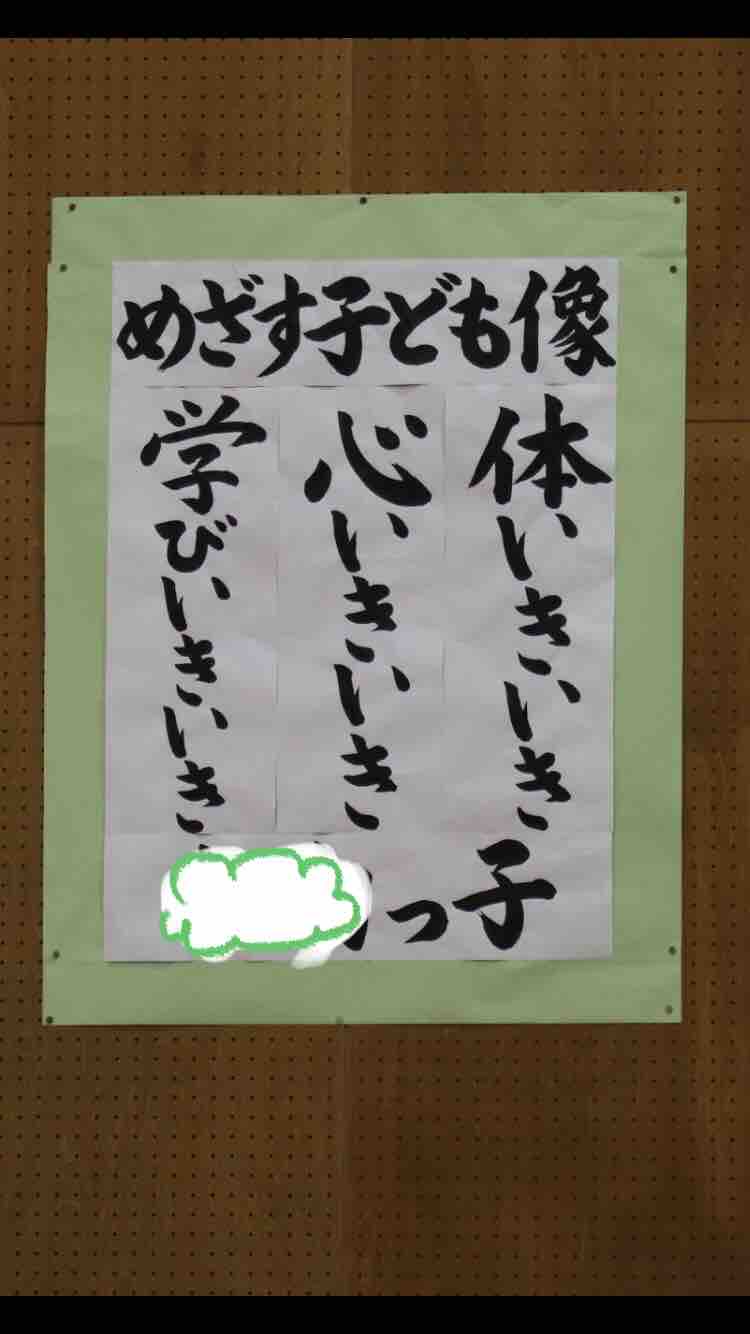 めざす子ども像
体いきいき
心いきいき
学びいきいき
っ子